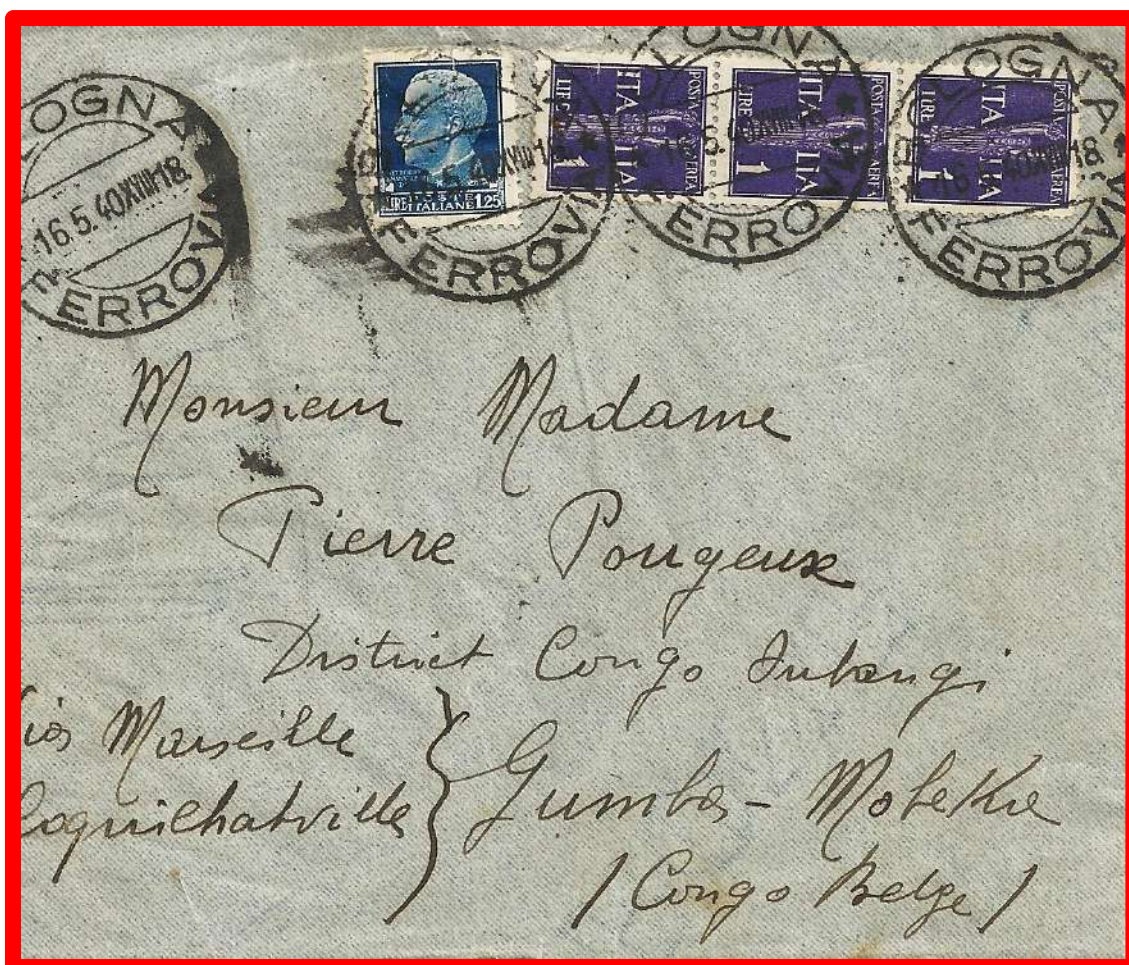 BOLOGNA FERROVIA
16.5.40XVIII18
POSTE ITALIANE
LIRE 1.25
POSTA AEREA
ITALIA
LIRE 1
POSTA AEREA
ITALIA
LIRE 1
POSTA AEREA
ITALIA
LIRE 1
OLOGNA FERROVIA
16.5.40XVIII18
Monsieur Madame
Pierre Pougeux
District Congo Iubangi
ia Marseille
Coquilhatville
Gumba - Mobeka
/ Congo Belge /